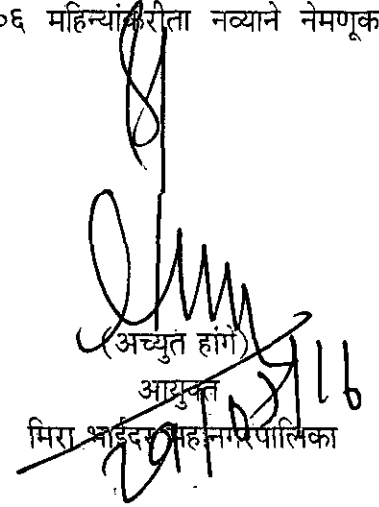 ०६ महिन्यांकरीता नव्याने नेमणूक
(अच्युत हांगे)
आयुक्त
मिरा भाईंदर महानगरपालिका